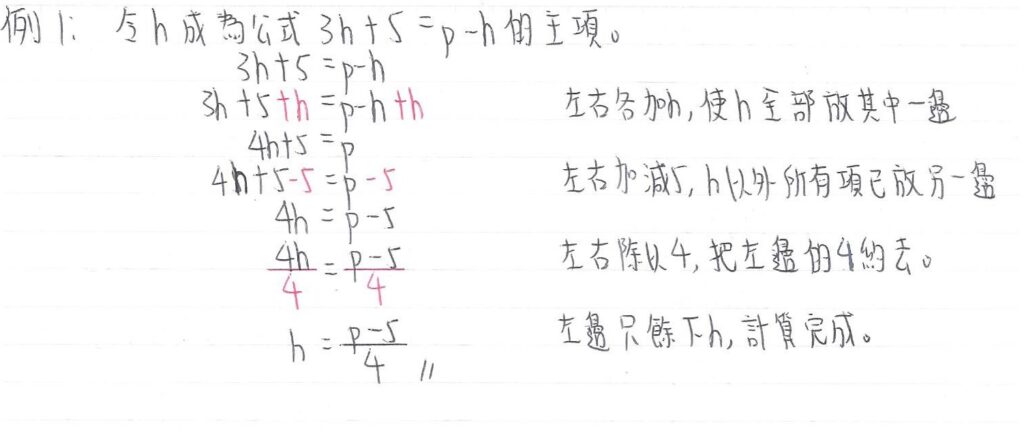 例1: 令h成為公式 3h+5=p-h的主項。
3h+5=p-h
3h+5+h=p-h+h 左右各加h,使h全部放其中一邊
4h+5=p
4h+5-5=p-5 左右加減5,h以外所有項已放另一邊
4h=p-5
4h/4=p-5/4 左右除以4,把左邊的4約去。
h=p-5/4 // 左邊只餘下h,計算完成。